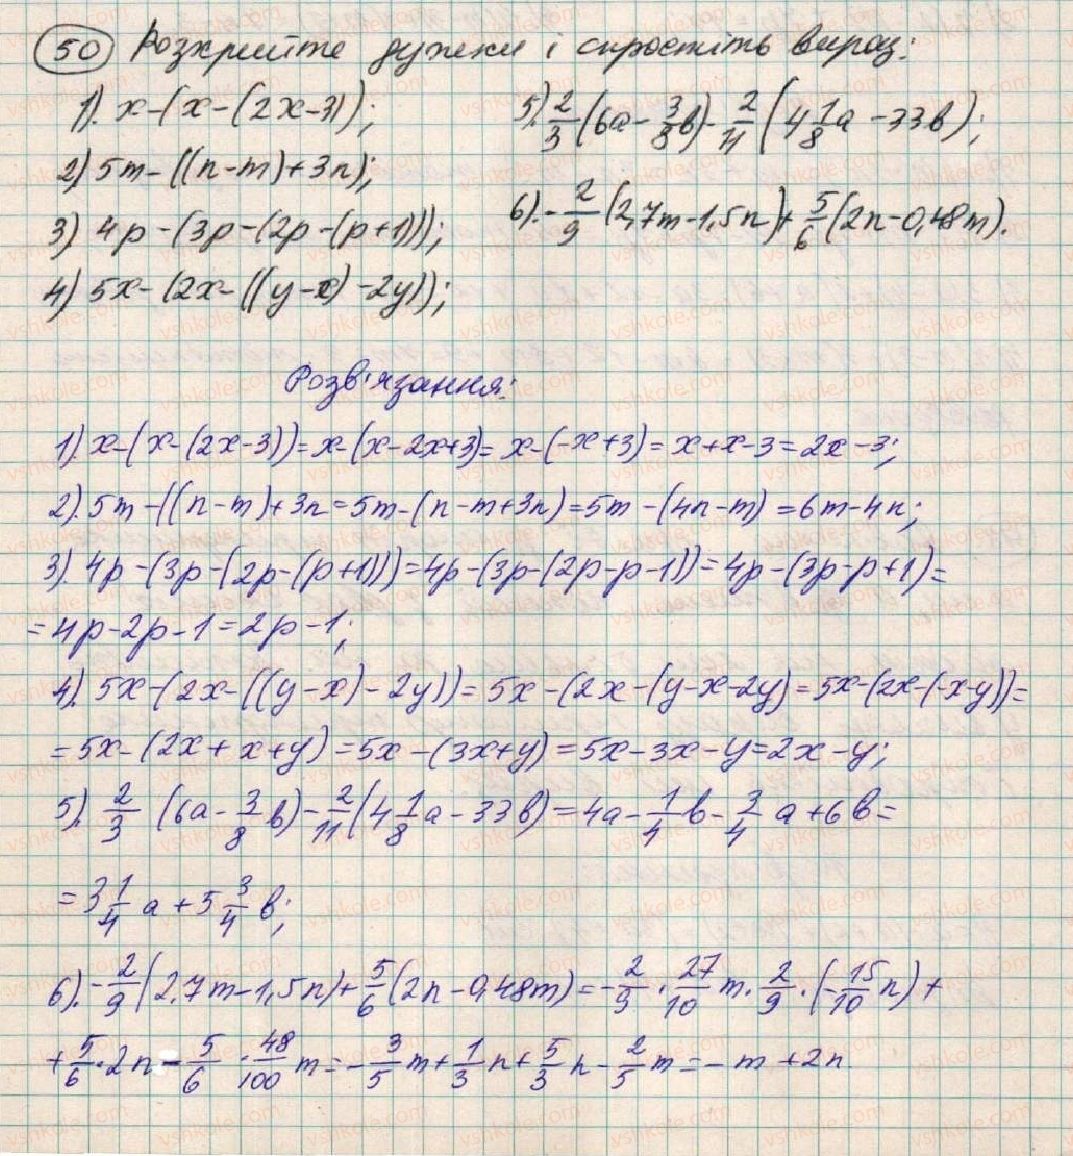 50 Розкрийте дужки і спростіть вираз:
1). x-(x-(2x-3));
2) 5m-((n-m)+3n);
3) 4p-(3p-(2p-(p+1)));
4) 5x-(2x-((y-x)-2y));
5). 2/3 (6a-3/8 b)-2/11 (4 1/8 a-33b);
6). -2/9 (2,7m-1,5n)+5/6 (2n-0,48m).
Розв'язання:
1) x-(x-(2x-3))=x-(x-2x+3)=x-(-x+3)=x+x-3=2x-3;
2). 5m-((n-m)+3n=5m-(n-m+3n)=5m-(4n-m)=6m-4n;
3). 4p-(3p-(2p-(p+1)))=4p-(3p-(2p-p-1))=4p-(3p-p+1)=
=4p-2p-1=2p-1;
4). 5x-(2x-((y-x)-2y))=5x-(2x-(y-x-2y)=5x-(2x-(-x-y))=
=5x-(2x+x+y)=5x-(3x+y)=5x-3x-y=2x-y;
5). 2/3 (6a-3/8 b)-2/11 (4 1/8 a-33b)=4a-1/4 b-3/4 a+6b=
=3 1/4 a+5 3/4 b;
6). -2/9 (2,7m-1,5n)+5/6 (2n-0,48m)=-2/9 · 27/10 m · 2/9 · (-15/10 n)+
+5/6 · 2n-5/6 · 48/100 m=-3/5 m+1/3 n+5/3 n-2/5 m=-m+2n.